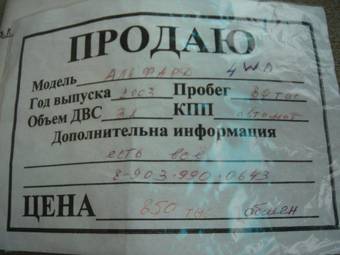 ПРОДАЮ
Модель АЛЬФАРД 4WD
Год выпуска 2003 Пробег тыс
Объем ДВС 3л КПП автомат
Дополнительна информация
есть все
8-903-990-0643
ЦЕНА 850 ты обмен